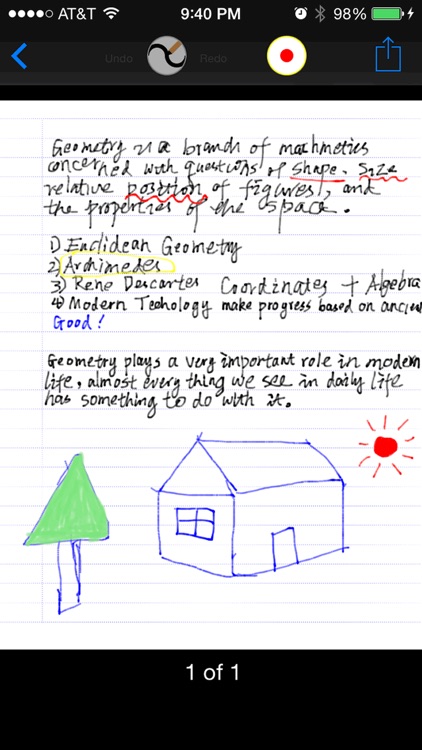 AT&T 9:40 PM 98%
Undo Redo
Geometry is a branch of machmetics
concerned with questions of shape. Size
relative position of figures, and
the properties of the space.
1) Euclidean Geometry
2) Archimedes
3) Rene Descartes Coordinates + Algebra
4) Modern Techology make progress based on ancien
Good!
Geometry plays a very important role in modern
life, almost every thing we see in daily life
has something to do with it.
1 of 1